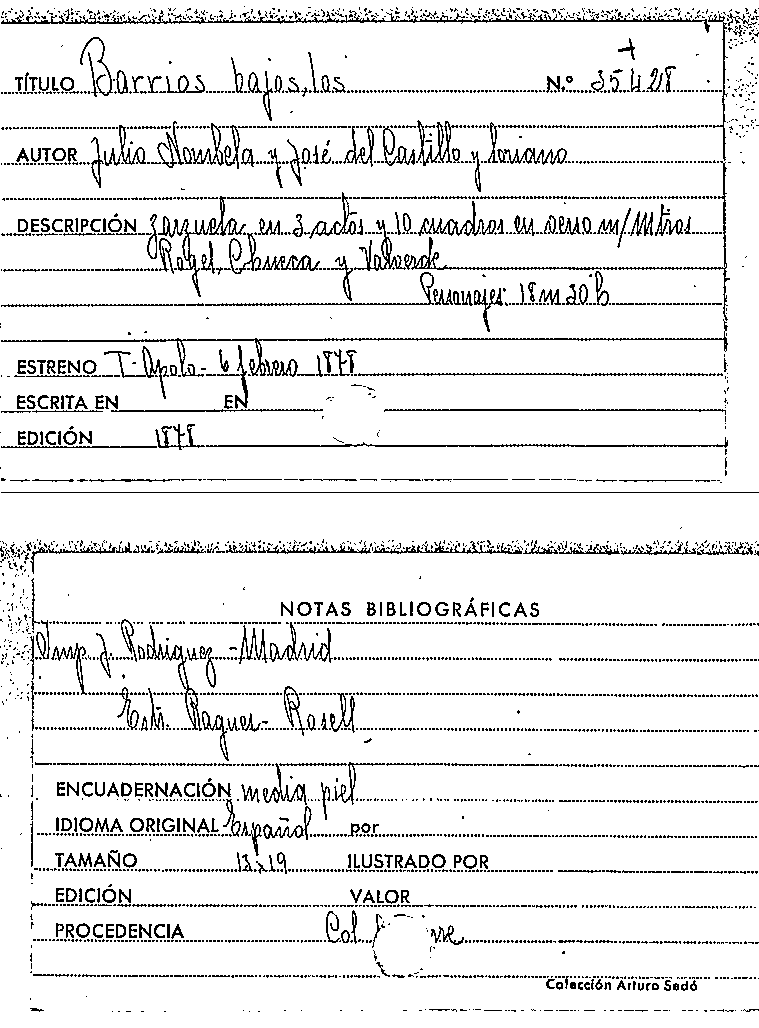 +
TÍTULO Barrios bajos, los N.º 35428
AUTOR Julio Nombela y José del Castillo y Soriano
DESCRIPCIÓN zarzuela en 3 actos y 10 cuadros en verso m/Mtros
Rogel, Chueca y Valverde
Personajes: 18 m 20 h
ESTRENO T. Apolo - 6 febrero 1878
ESCRITA EN EN
EDICIÓN 1878
NOTAS BIBLIOGRÁFICAS
Imp J. Rodriguez - Madrid
Estr. Raquer - Rosell
ENCUADERNACIÓN media piel
IDIOMA ORIGINAL Español por
TAMAÑO 13x19 ILUSTRADO POR
EDICIÓN VALOR
PROCEDENCIA Col.
Colección Arturo Sedó